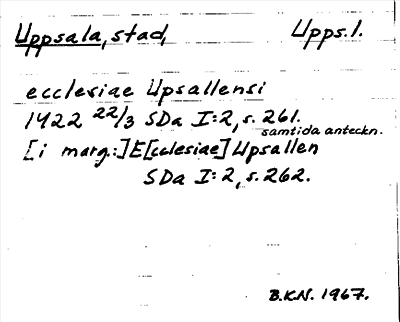 Uppsala, stad, Upps.l.
ecclesiae Upsallensi
1422 22/3 SDa I:2, s. 261.
samtida anteckn.
[i marg.:] E[cclesiae] Upsallen
SDa I:2, s. 262.
B.K.N. 1967.